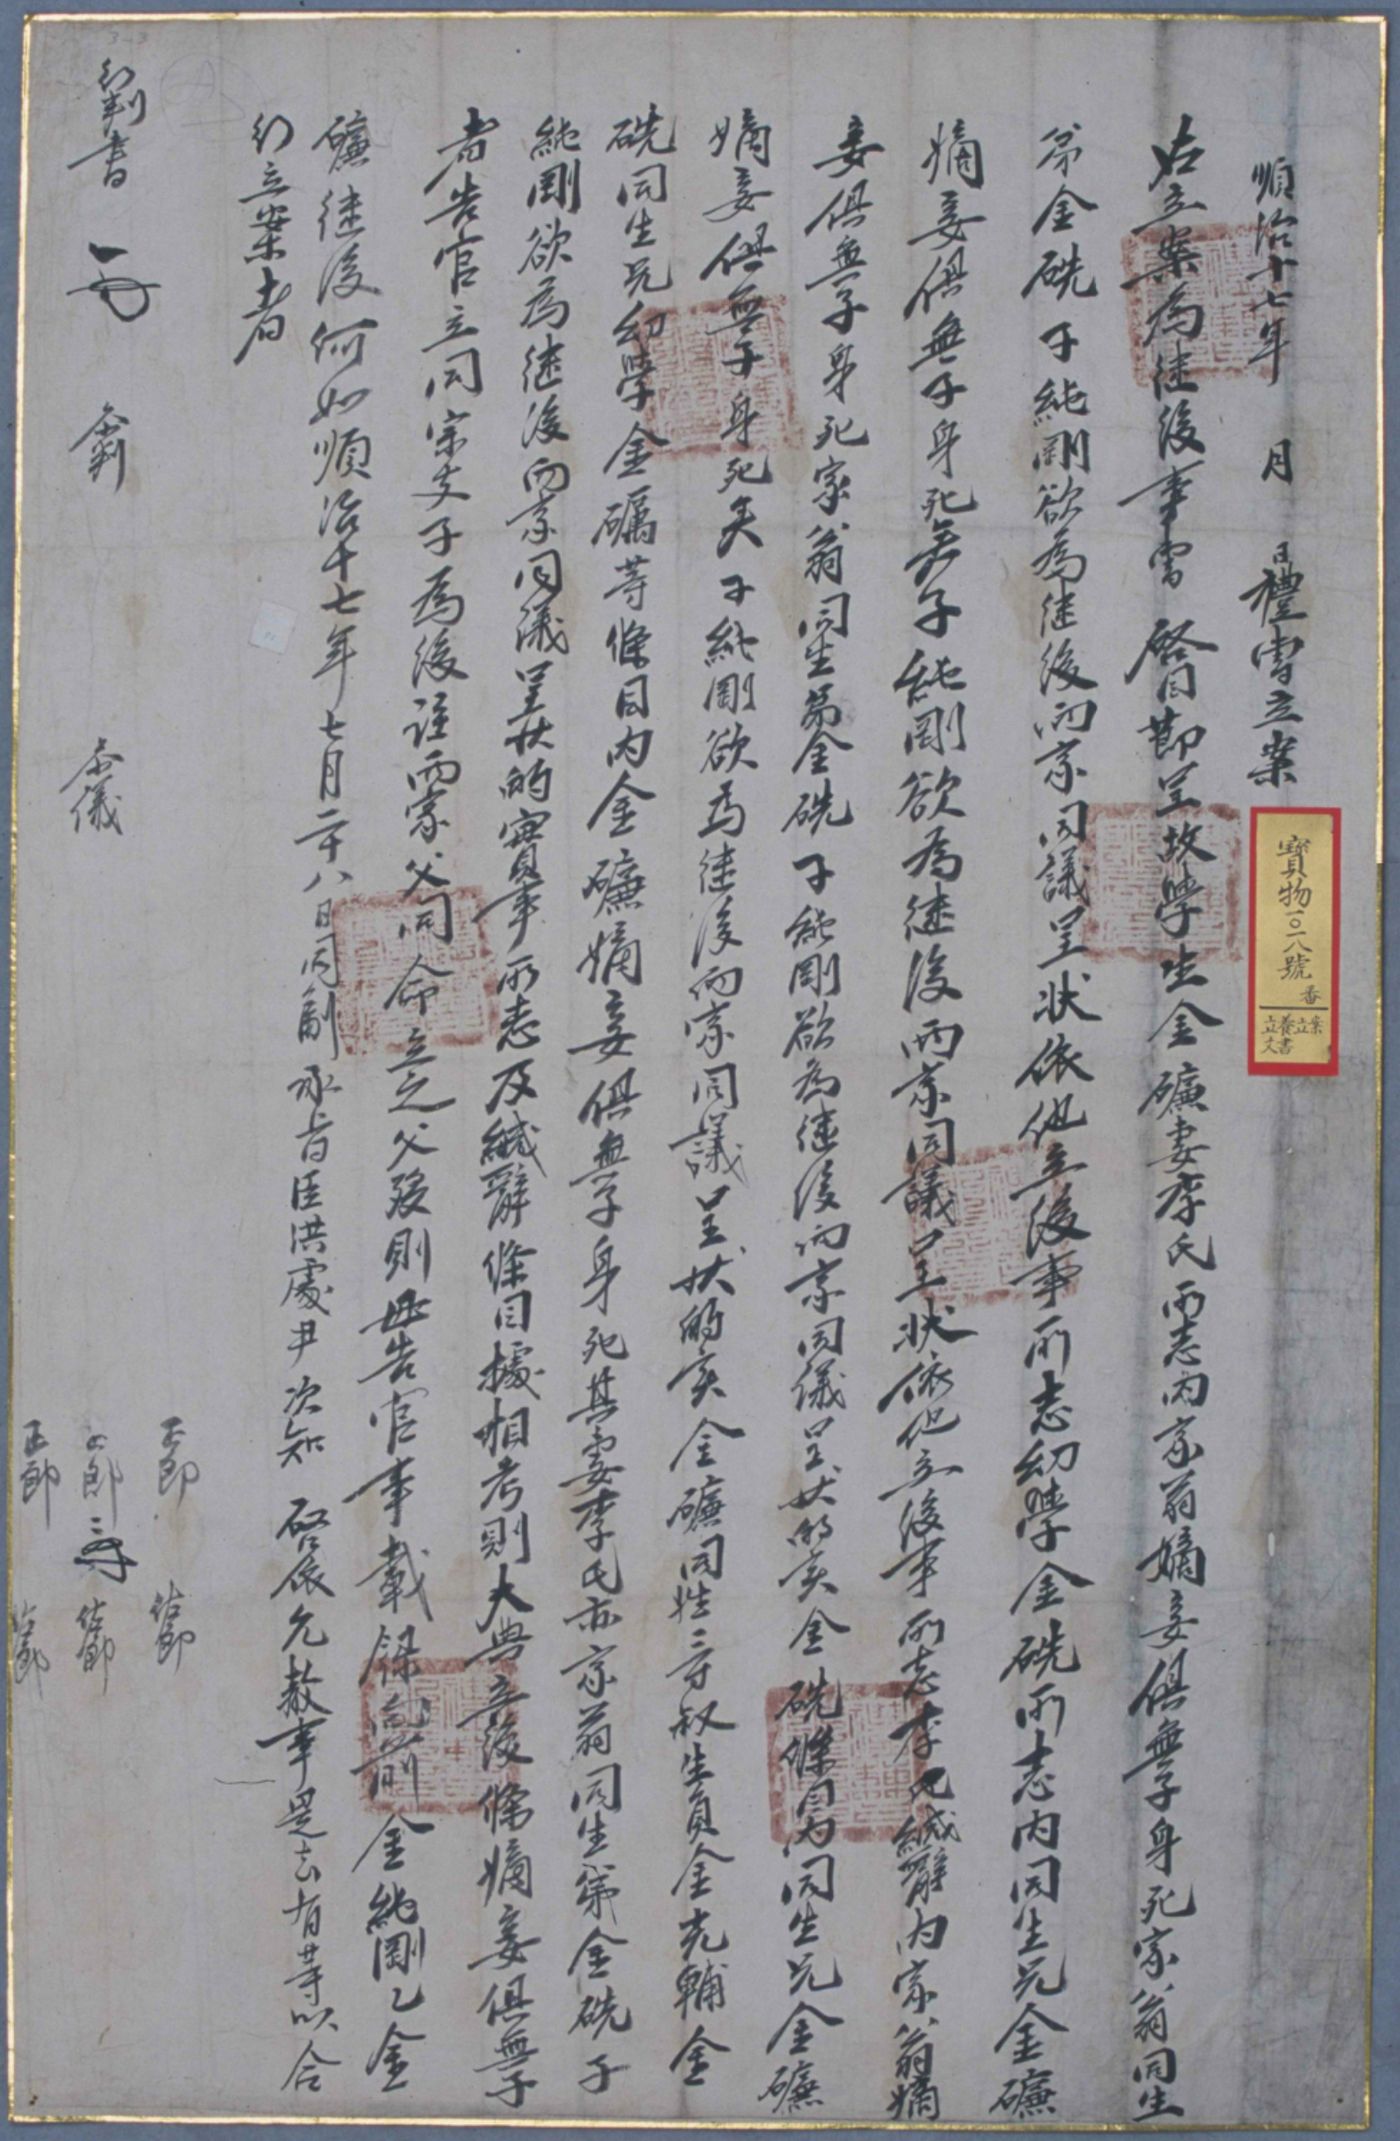 順治十七年 月 日禮曹立案
右立案爲繼後事曹 啓目節呈故學生金礦妻李氏所志內家翁嫡妾俱無子身死家翁同生
弟金硄子純剛欲爲繼後兩家同議呈狀依他立後事所志幼學金硄所志內同生兄金礦
嫡妾俱無子身死矣子純剛欲爲繼後兩家同議呈狀依他立後事所志李氏緘辭內家翁嫡
妾俱無子身死家翁同生弟金硄子純剛欲爲繼後兩家同議呈狀的實金硄條目內同生兄金礦
嫡妾俱無子身死矣子純剛欲爲繼後兩家同議呈狀的實金礦同姓三寸叔生員金克輔金
硄同生兄幼學金礪等條目內金礦嫡妾俱無子身死其妻李氏亦家翁同生弟金硄子
純剛欲爲繼後兩家同議呈狀的實事所志及緘辭條目據相考則大典立後條嫡妾俱無子
者告官立同宗支子爲後註兩家父同命立之父歿則母告官事載錄向前金純剛乙金
礦繼後何如順治十七年七月二十八日同副承旨臣洪處尹次知 啓依允敎事是去有等以合
行立案者
行判書 參判 參議
正郎 佐郎
正郎 佐郎
正郎 佐郎
寶物一〇一八號
番
立養立案
文書
3-3